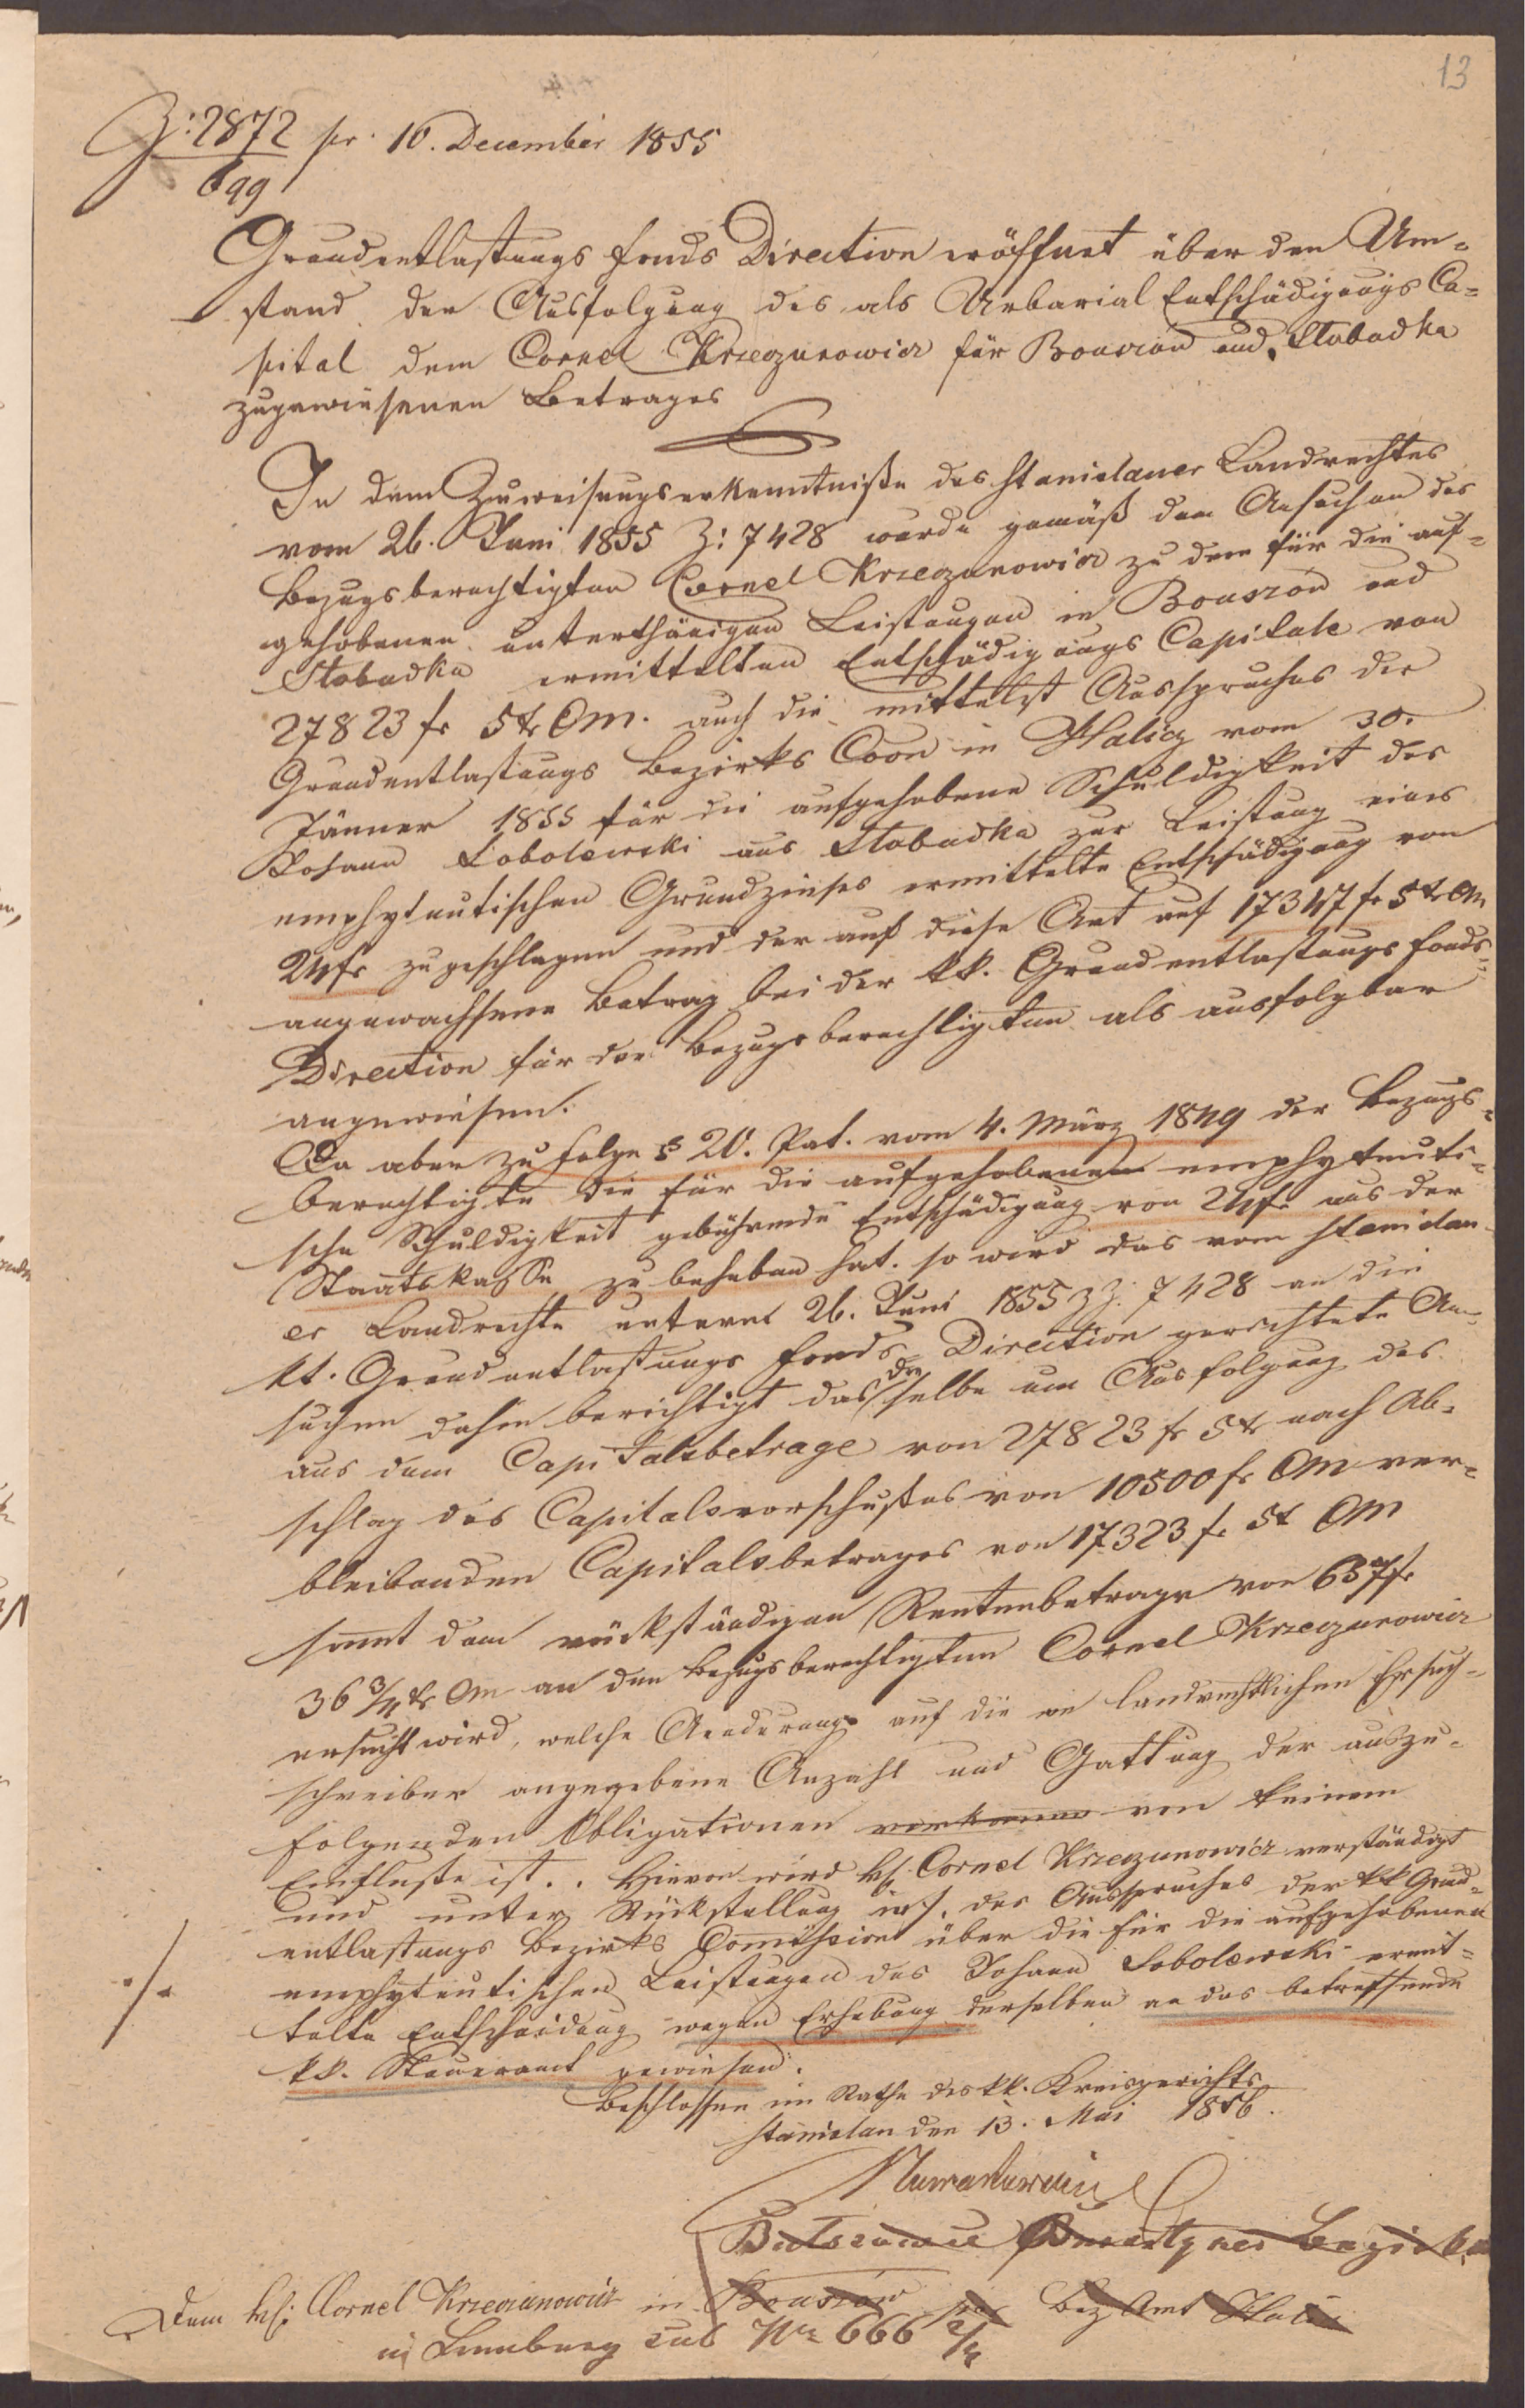 13
Z: 2872 pr. 16. December 1855
699
Grundentlastungs Fonds Direction eröffnet über den Um=
stand der Ausfolgung des als Urbarial Entschädigungs Ca=
pital dem Cornel Krzeczunowicz für Bouszów und Słobudka
zugewiesenen Betrages
In dem Zuweisungserkenntniße des Stanislauer Landrechtes
vom 26. Juni 1855 Z: 7428 wurde gemäß dem Ansuchen des
Bezugsberechtigten Cornel Krzeczunowicz zu dem für die auf=
gehobenen unterthänigen Leistungen in Bouszów und
Słobudka ermittelten Entschädigungs Capitale von
27823 fr 5 kr CM. auch die mittelst Ausspruches der
Grundentlastungs Bezirks Coon in Halicz vom 30.
Jänner 1855 für die aufgehobene Schuldigkeit des
Johann Sobolewski aus Słobudka zur Leistung eines
emphyteutischen Grundzinses ermittelte Entschädigung von
24 fr zugeschlagen und der auf diese Art auf 17347 fr 5 kr CM
angewachsene Betrag bei der kk. Grundentlastungs Fonds
Direction für den Bezugsberechtigten als ausfolgbar
angewiesen.
Da aber zu Folge § 20. Pat. vom 4. März 1849 der Bezugs=
berechtigte die für die aufgehobene emphyteuti=
sche Schuldigkeit gebührende Entschädigung von 24 fr aus der
Staatskasse zu beheben hat. so wird das vom Stanislau
er Landrechte unterm 26. Juni 1855 z Z. 7428 an die
kk. Grundentlastungs Fonds Direction gerichtete An=
suchen dahin berichtigt daß dieselbe um Ausfolgung des
aus dem Capitalsbetrage von 27823 fr 5 kr nach Ab=
schlag des Capitalsvorschußes von 10500 fr CM ver=
bleibenden Capitalsbetrages von 17323 fr 5 kr CM
sammt dem rückständigen Rentenbetrage von 637 fr
36 3/4 kr CM an den Bezugsberechtigten Cornel Krzeczunowicz
ersucht wird, welche Aenderung auf die im landrechtlichen Ersuch=
schreiben angegebene Anzahl und Gattung der auszu=
folgenden Obligationen von keinem
Einfluße ist. . Hievon wird H. Cornel Krzeczunowicz verständigt
und unter Rückstellung des Ausspruches der kk Grund=
entlastungs Bezirks Comission über die für die aufgehobenen
emphyteutischen Leistungen des Johann Sobolewski ermit=
telte Entschädigung wegen Erhebung derselben an das betreffende
kk. Steueramt gewiesen.
./.
Beschlossen im Rathe des kk. Kreisgerichts
Stanislau den 13. Mai 1856.
Bezirk
Dem H. Cornel Krzeczunowicz in Bouszów Bez Amt Halicz
in Lemberg sub Nr 666 2/4